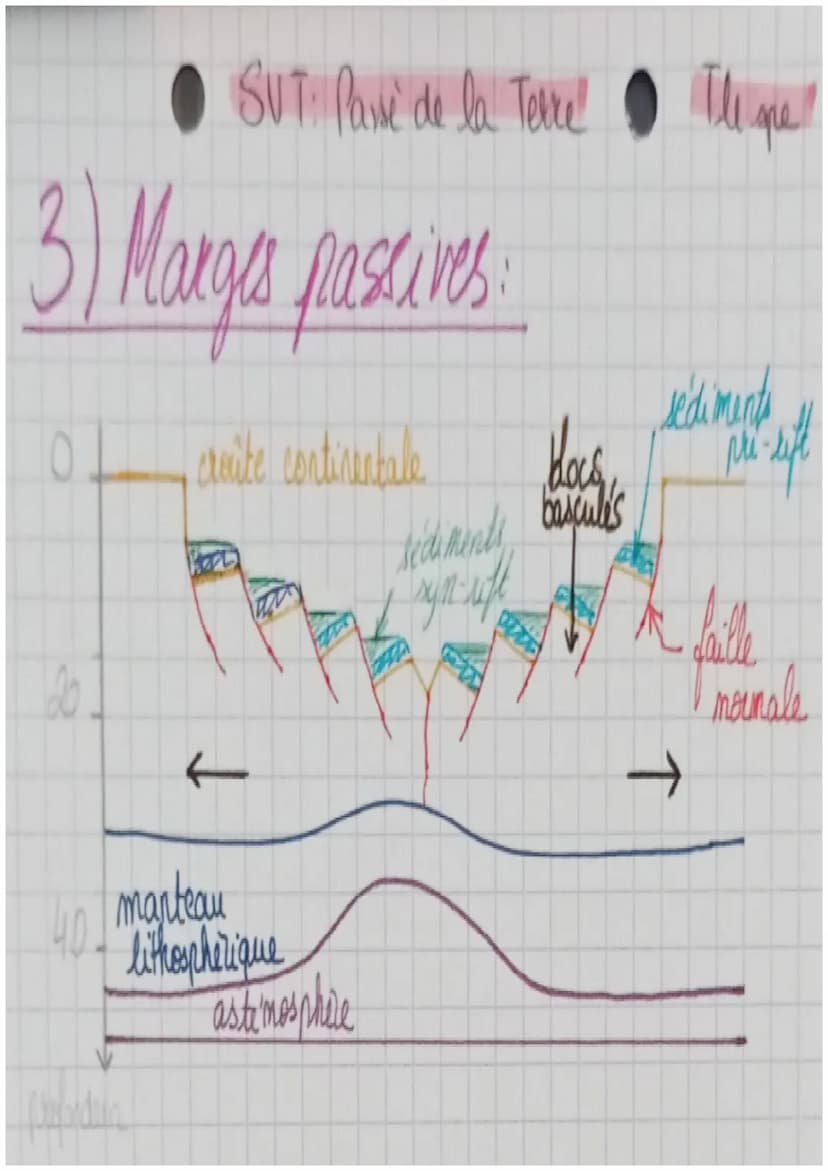 SVT: Passé de la Terre
Tle spe
3) Marges passives:
sédiments
pré-rift
0
croûte continentale
blocs
basculés
sédiments
syn-rift
faille
normale
20
manteau
lithosphérique
40
asténosphère
profondeur